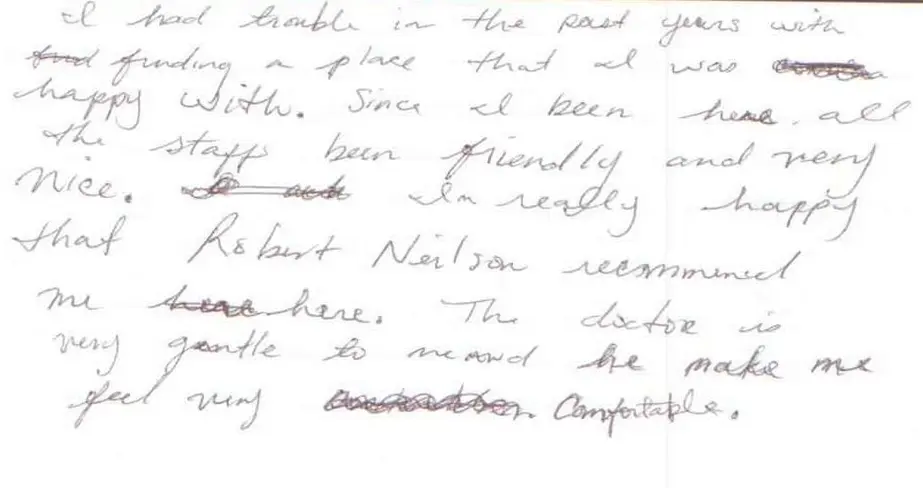 I had trouble in the past years with
finding a place that I was
happy with. Since I been here. all
the staff been friendly and very
nice. Im really happy
that Robert Neilson recommened
me here. The doctor is
very gentle to me and he make me
feel very Comfortable.